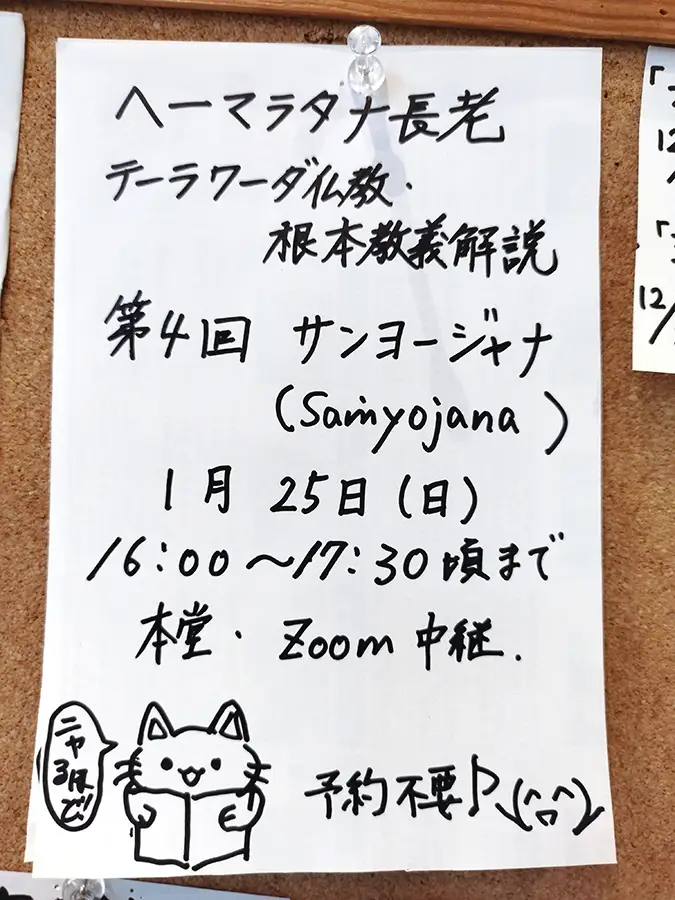 ヘーマラタナ長老
テーラワーダ仏教・
根本教義解説
第4回 サンヨージャナ
(Saṁyojana)
1月 25日(日)
16:00〜17:30頃まで
本堂・Zoom中継.
ニャ
るほ
ど!
予約不要♪\(^□^)/
「
12
「
12/